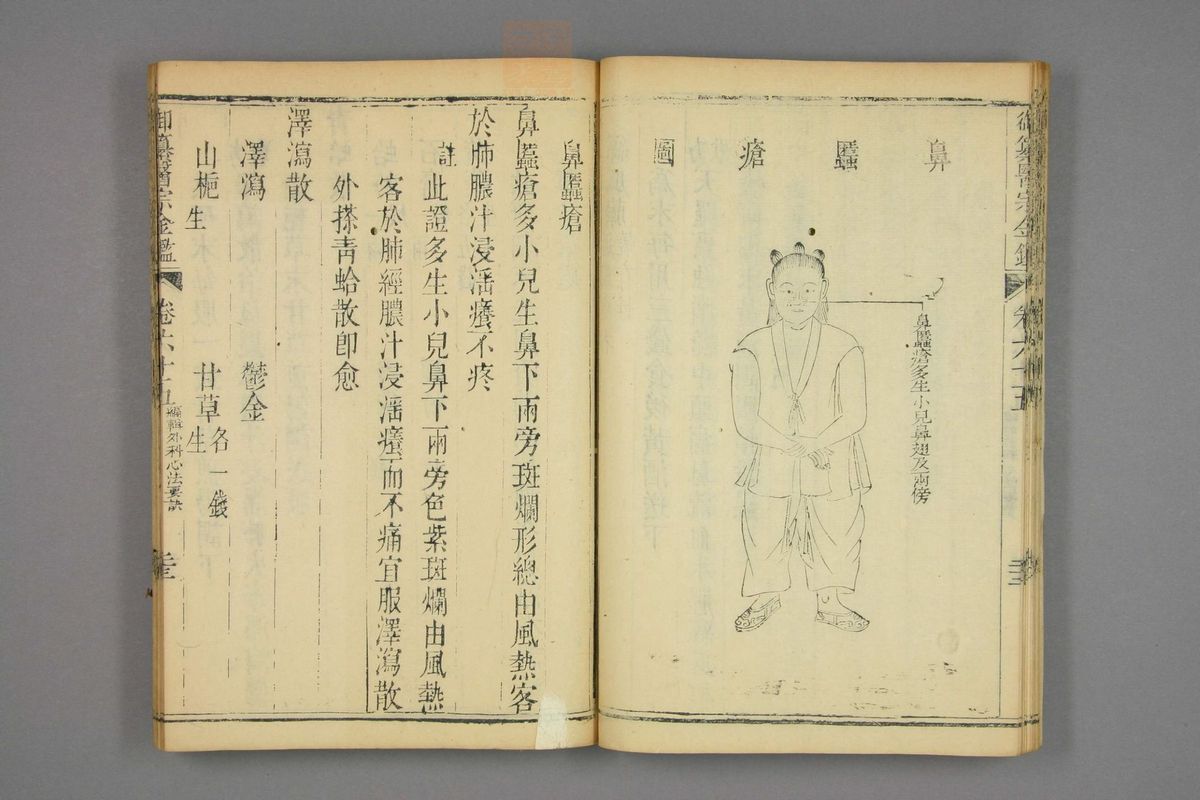 鼻䘌瘡圖
鼻䘌瘡多生小兒鼻翅及兩傍
卷六十五
鼻䘌瘡
鼻䘌瘡多小兒生鼻下兩旁斑爛形總由風熱客
於肺膿汁浸淫癢不疼
註此證多生小兒鼻下兩旁色紫斑爛由風熱
客於肺經膿汁浸淫癢而不痛宜服澤瀉散
外搽青蛤散卽愈
澤瀉散
澤瀉 鬱金
山梔生 甘草生各一錢
御纂醫宗金鑑 卷六十五 編輯外科心法要訣